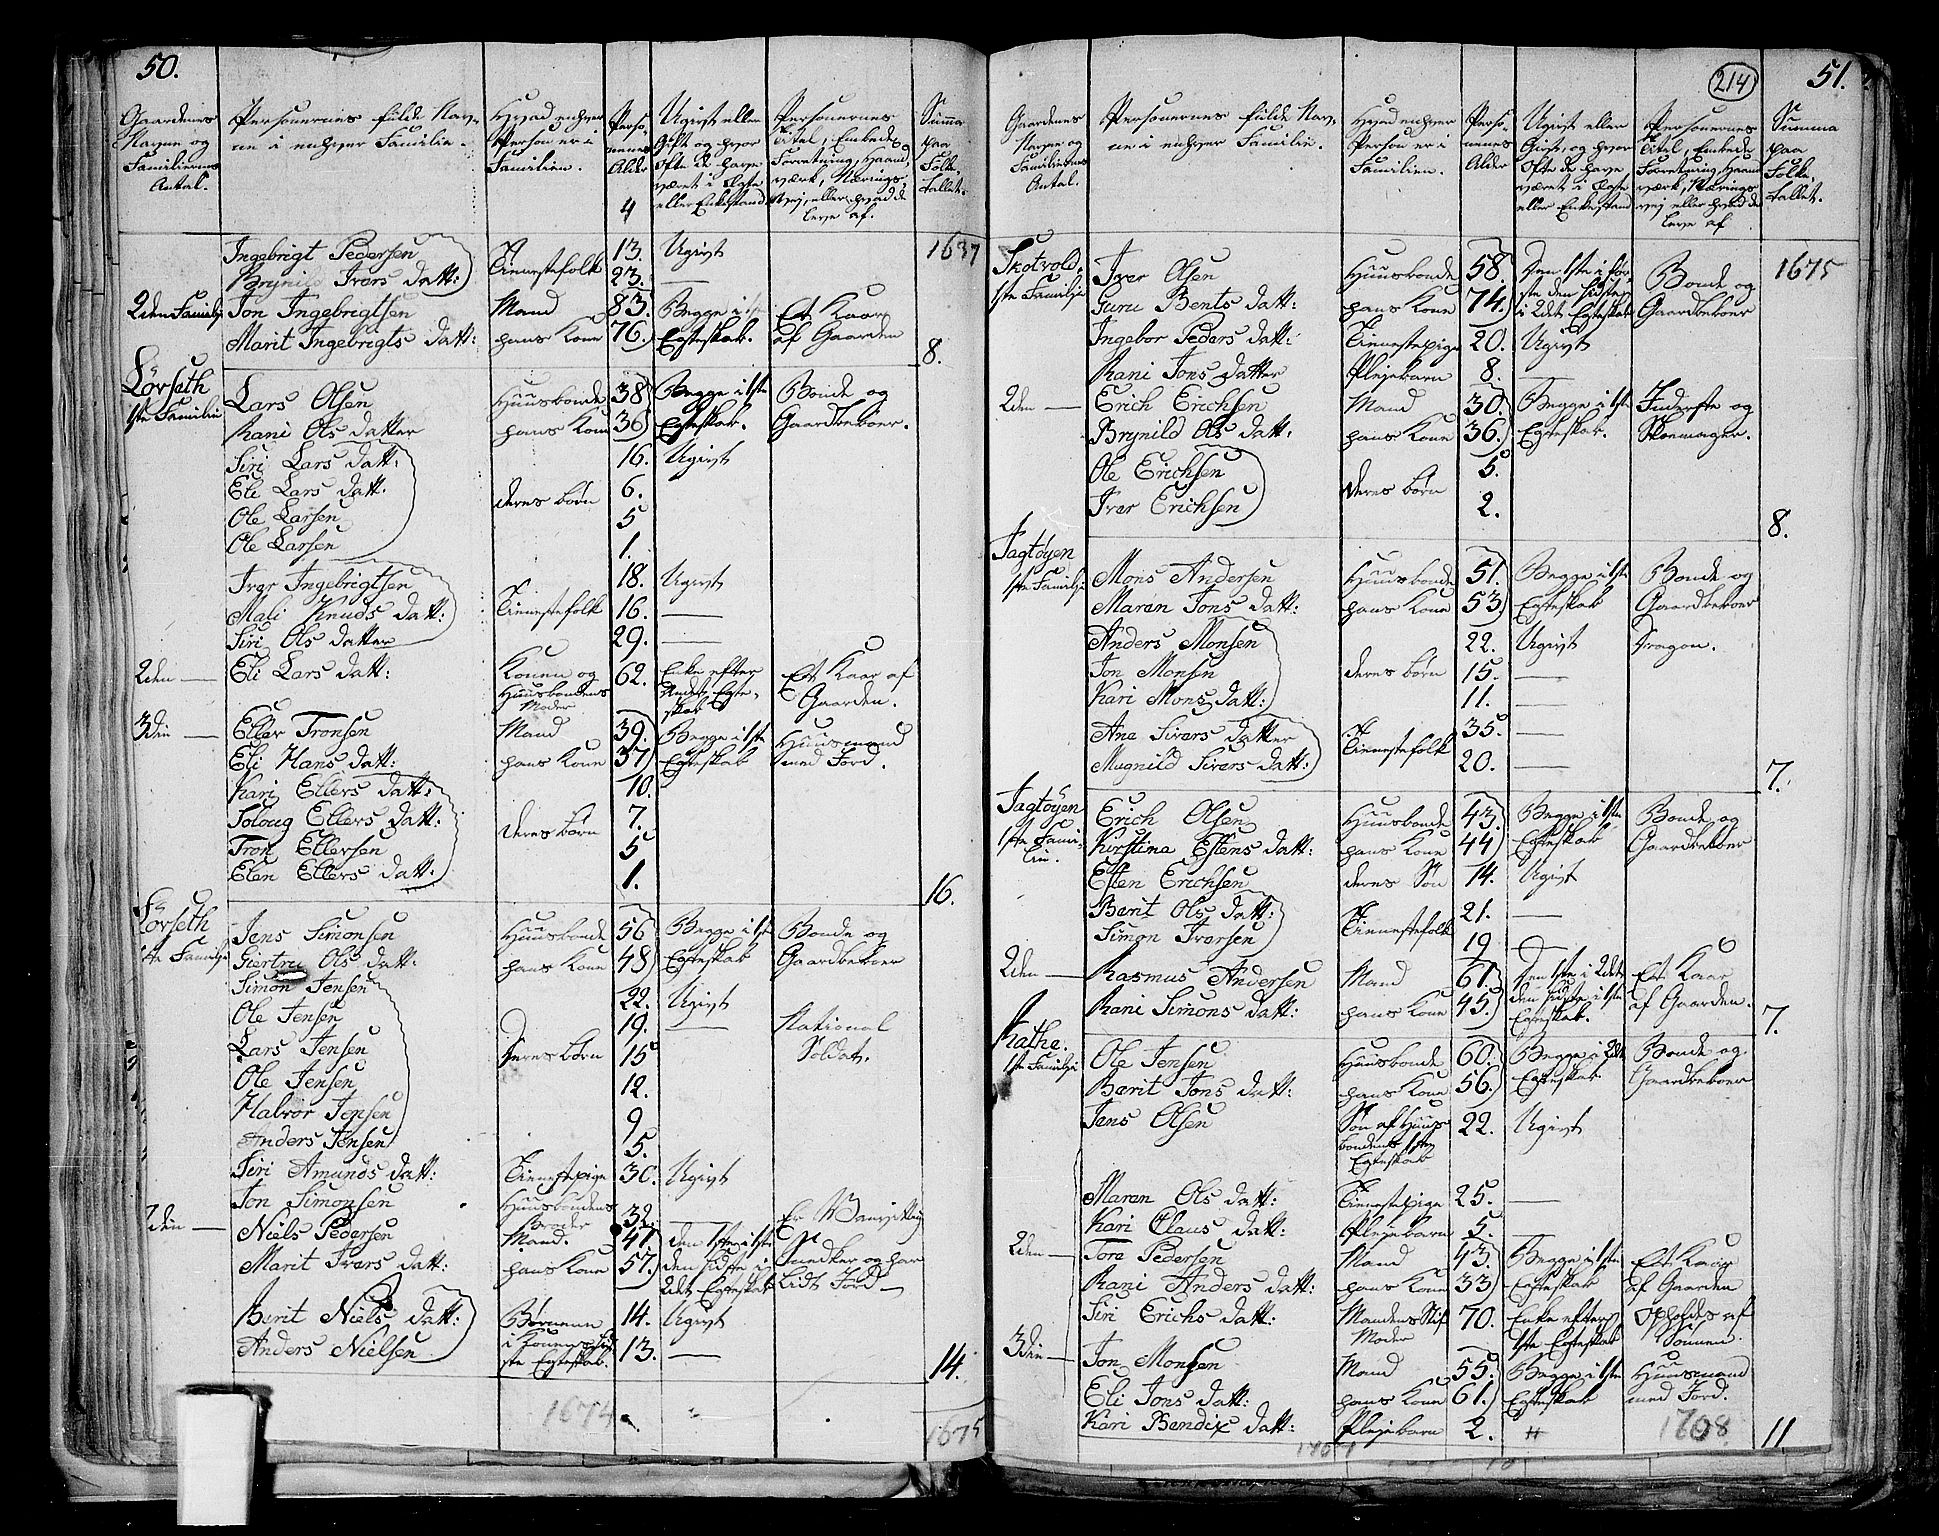 50.
Gaardenes Navne og Familiernes Antal.
Personernes fulde Navne i enhver Familie.
Hvad enhver Person er i Familien.
Personernes Alder
Ugivt eller Gift og hvor Ofte de have været i Ægte eller Enkestand
Personernes Titel, Embede, Forretning, Haandværk, Næringsvej, eller hvad de leve af.
Summa paa Folketallet.
4
1637
Ingebrigt Pedersen 13. Ugivt
Brynild Ivers datt: Tienestefolk 23. —
2den Familie Jon Ingebrigtsen Mand 83. Begge i Et Kaar
Marit Ingebrigts datt: hans Kone 76. Egteskab. af Gaarden
8.
Lörseth
1ste Familie Lars Olsen Huusbonde 38 Begge i 1ste Bonde og
Rani Ols datter hans Kone 36 Egteskab. Gaardbeboer.
Siri Lars datt: 16. Ugivt
Eli Lars datt. deres börn 6.
Ole Larsen 5
Ole Larsen 1.
Iver Ingebrigtsen 18. Ugivt
Mali Knuds datt: Tienestefolk 16. —
Siri Ols datter 29. —
2den — Eli Lars datt: Konen og Huusbondens Moder 62. Enke efter Andet Egteskab Et Kaar af Gaarden.
3die — Eller Tronsen Mand 39. Begge i 1ste Huusmand
Eli Hans datt: hans Kone 37 Egteskab med Jord.
Kari Ellers datt: 10.
Soloug Ellers datt: deres börn 7.
Tron Ellersen 5
Elen Ellers datt: 1.
16.
Lörseth
1ste Familie Jens Simonsen Huusbonde 56 Begge i 1ste Bonde og
Giertru Ols datt: hans Kone 48 Egteskab Gaardbeboer
Simon Jensen 22. Ugivt
Ole Jensen 19. — National Soldat.
Lars Jensen Deres börn 15
Ole Jensen 12.
Halvor Jensen 9
Anders Jensen 5.
Siri Amunds datt: Tienestepige 30. Ugivt
Jon Simonsen Huusbondens Broder 32. — Er Vanvittig
2den — Niels Pedersen Mand. 41. den 1ste i 1ste Snedker og har
Marit Ivers datt: hans Kone 57. den sidste i 2det Egteskab Lidt Jord —
Berit Niels datt: Börnene 14. Ugivt
Anders Nielsen i Konens förste Egteskab. 13. —
14.
1674
1675
214
51.
Gaardenes Navne og Familiernes Antal.
Personernes fulde Navne i enhver Familie.
Hvad enhver Person er i Familien.
Personernes Alder
Ugivt eller Givt, og hvor Ofte de have været i Ægte eller Enkestand
Personernes Titel, Embede Forretning, Haandværk, Næringsvej eller hvad de leve af
Summa paa Folketallet.
1675
Skotvold
1ste Familie Iver Olsen Huusbonde 58. Den 1ste i förste den sidste Bonde og
Guru Bents datt: hans Kone 74. i 2det Egteskab Gaardbeboer
Ingebor Peders datt: Tienestepige 20. Ugivt
Rani Jons datter Plejebarn 8. —
2den — Erich Erichsen Mand 30. Begge i 1ste Inderste og
Brynild Ols datt. hans Kone 36. Egteskab. Skomager.
Ole Erichsen deres börn 5.
Iver Erichsen 2.
8.
Jagtöyen
1ste Familie Mons Andersen Huusbonde 51. Begge i 1ste Bonde og
Maren Jons datt: hans Kone 53. Egteskab Gaardbeboer
Anders Monsen 22. Ugivt Dragon.
Jon Monsen deres börn 15. —
Kari Mons datt: 11. —
Ane Sivers datter Tienestefolk 35. —
Magnild Sivers datt: 20. —
7.
Jagtöyen
1ste Familie. Erich Olsen Huusbonde 43. Begge i 1ste Bonde og
Kirstina Estens datt: hans Kone 44 Egteskab Gaardbeboer
Esten Erichsen deres Sön 14. Ugivt
Berit Ols datt: Tienestefolk 21. —
Simon Iversen 19 —
2den — Rasmus Andersen Mand 61. Den 1ste i 2det Et Kaar
Rani Simons datt: hans Kone 45. den sidste i 1ste Egteskab. af Gaarden.
7.
Rathe.
1ste Familie Ole Jensen Huusbonde 60. Begge i 2det Bonde og
Berit Jons datt: hans Kone 56. Egteskab Gaardbeboer
Jens Olsen Sön af Huusbondens 1ste Egteskab 22. Ugivt
Maren Ols datt: Tienestepige 25. —
Kari Claus datt: Plejebarn 5. —
2den — Tore Pedersen Mand 43. Begge i 1ste Et Kaar
Rani Anders datt: hans Kone 33 Egteskab af Gaarden
Siri Erichs datt: Mandens Stifmoder 70. Enke efter 1ste Egteskab Opholdes af Sönnen.
3die — Jon Monsen Mand 55. Begge i 1ste Huusmand
Eli Jons datt: hans Kone 61. Egteskab med Jord.
Kari Bendix datt: Plejebarn 2. "
1708
11